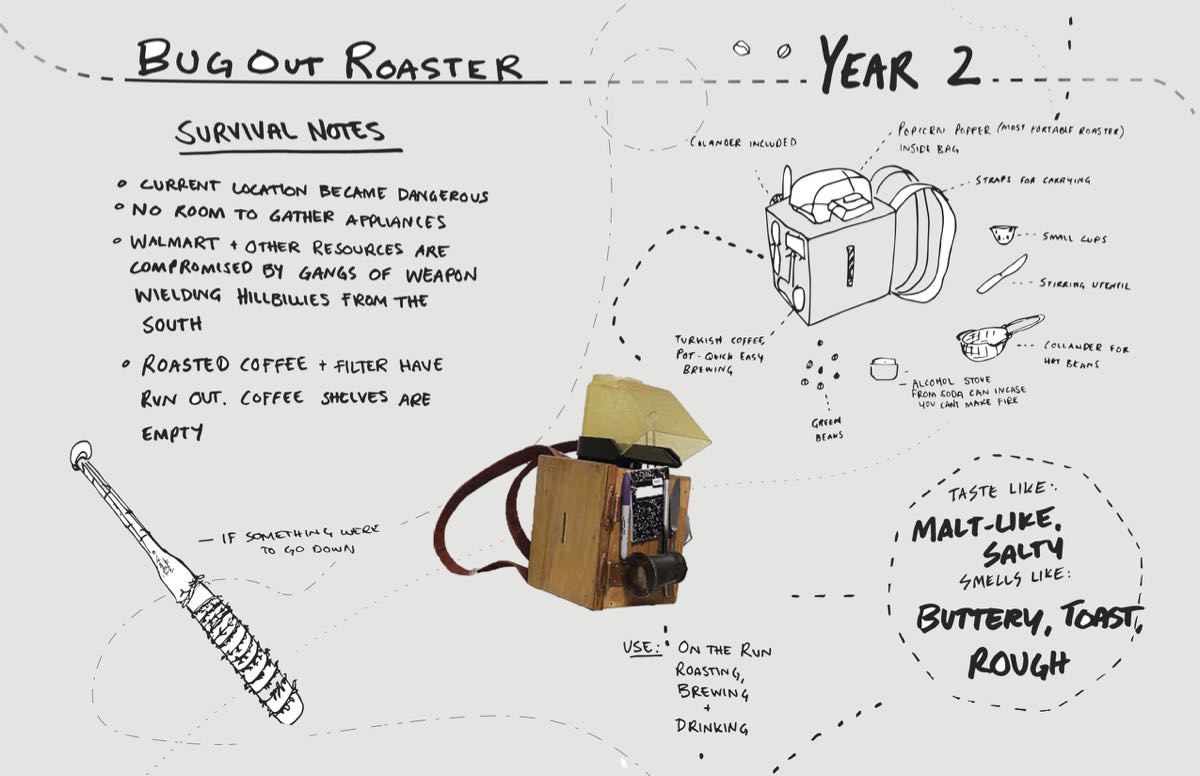 BUG OUT ROASTER
YEAR 2
SURVIVAL NOTES
• CURRENT LOCATION BECAME DANGEROUS
• NO ROOM TO GATHER APPLIANCES
• WALMART + OTHER RESOURCES ARE
COMPROMISED BY GANGS OF WEAPON
WIELDING HILLBILLIES FROM THE
SOUTH
• ROASTED COFFEE + FILTER HAVE
RUN OUT. COFFEE SHELVES ARE
EMPTY
— IF SOMETHING WERE
TO GO DOWN
COLANDER INCLUDED
POPCRN POPPER (MOST PORTABLE ROASTER)
INSIDE BAG
STRAPS FOR CARRYING
SMALL CUPS
STIRRING UTENTIL
COLLANDER FOR
HOT BEANS
TURKISH COFFEE
POT - QUICK EASY
BREWING
GREEN
BEANS
ALCOHOL STOVE
FROM SODA CAN INCASE
YOU CAN'T MAKE FIRE
USE: ON THE RUN
ROASTING,
BREWING
+
DRINKING
TASTE LIKE:
MALT-LIKE,
SALTY
SMELLS LIKE:
BUTTERY, TOAST,
ROUGH